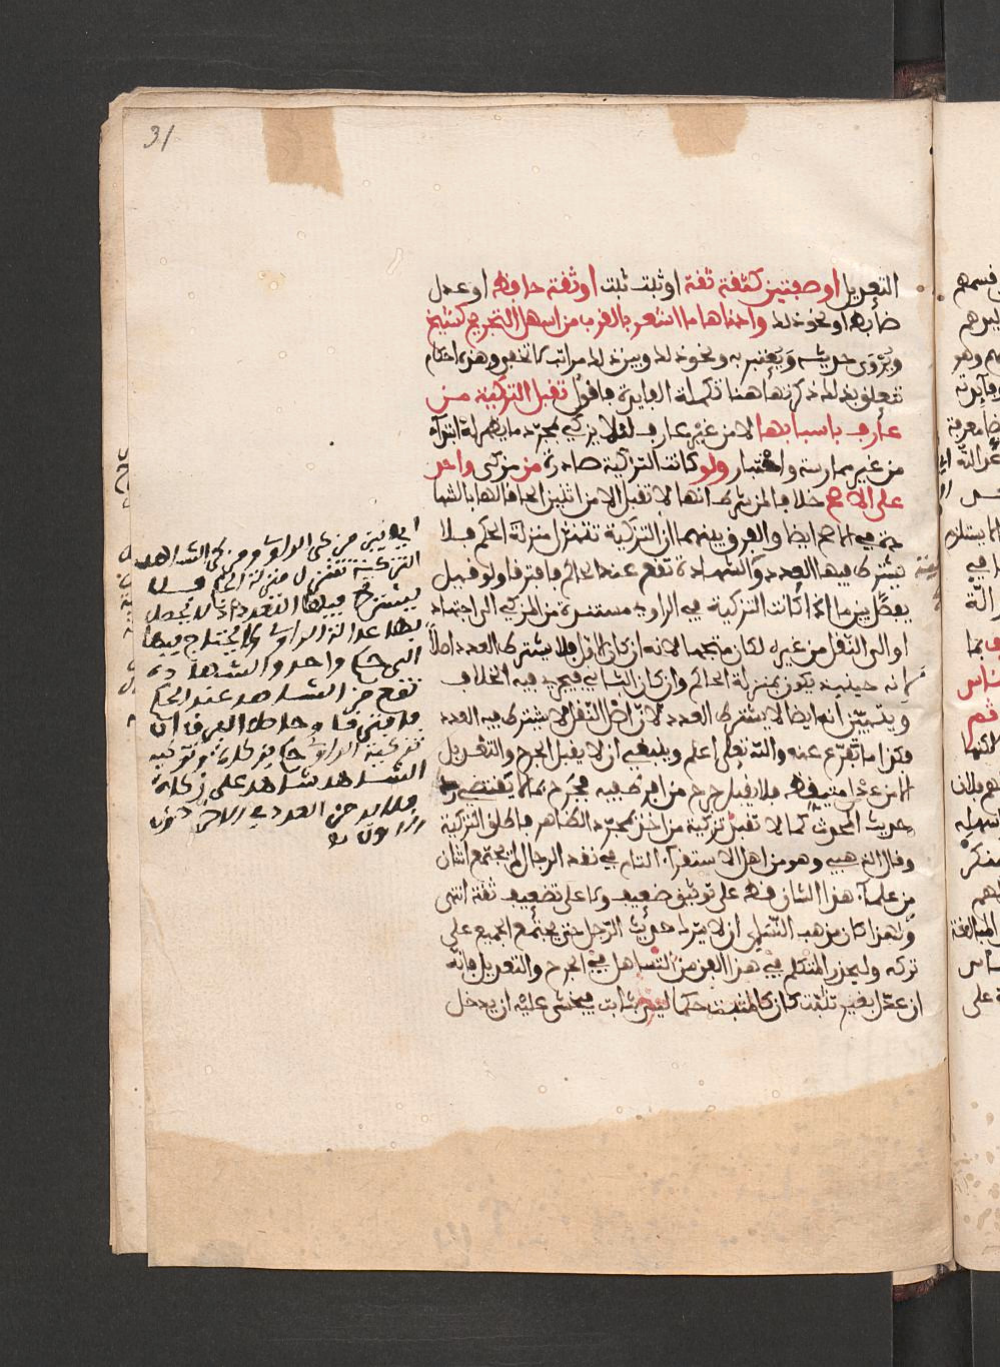 31
التعديل او صفتين كثقة ثقة او ثبت ثبت او ثقة حافظ او عدل
ضابط او نحو ذلك وادناها ما اشعر بالقرب من اسهل التجريح كشيخ
ويروى حديثه ويعتبر به ونحو ذلك وبين ذلك مراتب لا تخفى وهذه احكام
تتعلق بذلك ذكرتها هنا تكملة الفايدة فاقول تقبل التزكية من
عارف باسبابها لا من غير عارف لئلا يزكي بمجرد ما يظهر له ابتداء
من غير ممارسة واختبار ولو كانت التزكية صادرة من مزكى واحد
على الاصح خلافا لمن شرط انها لا تقبل الا من اثنين الحاقا لها بالشها
دة في الاصح ايضا والفرق بينهما ان التزكية تتنزل منزلة الحكم فلا
يشترط فيها العدد والشهادة تقع عند الحاكم فافترقا ولو قيل
يفصل بين ما اذا كانت التزكية في الراوي مستندة من المزكي الى اجتهاده
او الى النقل من غيره لكان متجها لانه ان كان الاول فلا يشترط العدد اصلاً
لانه حينيذ يكون بمنزلة الحاكم وان كان الثاني فيجري فيه الخلاف
ويتبين انه ايضا لا يشترط العدد لان اصل النقل لا يشترط فيه العدد
فكذا ما تفرع عنه والله تعالى اعلم وينبغي ان لا يقبل الجرح والتعديل
الا من عدل متيقظ فلا يقبل جرح من افرط فيه فجرح بما لا يقتضي رد
حديث المحدث كما لا تقبل تزكية من اخذ بمجرد الظاهر فاطلق التزكية
وقال الذهبي وهو من اهل الاستقراء التام في نقد الرجال لم يجتمع اثنان
من علماء هذا الشان قط على توثيق ضعيف ولا على تضعيف ثقة انتهى
ولهذا كان مذهب النسائي ان لا يترك حديث الرجل حتى يجتمع الجميع على
تركه وليحذر المتكلم في هذا الفن من التساهل في الجرح والتعديل فانه
ان عدل بغير تثبت كان كالمثبت حكما ليس بثابت فيخشى عليه ان يدخل
اي بين من زكى الراوي ومن زكى الشاهد
التزكية تتنزل منزلة الحكم فلا
يشترط فيها التعدد
بها عدالة الراوي ولا يحتاج فيها
الى حكم واحد والشهادة
تقع من الشاهد عند الحاكم
فافترقا وحاصل الفرق ان
تزكية الراوي حكم
الشاهد شاهد على
فلا بد من العدد في الاخر دون
الاول